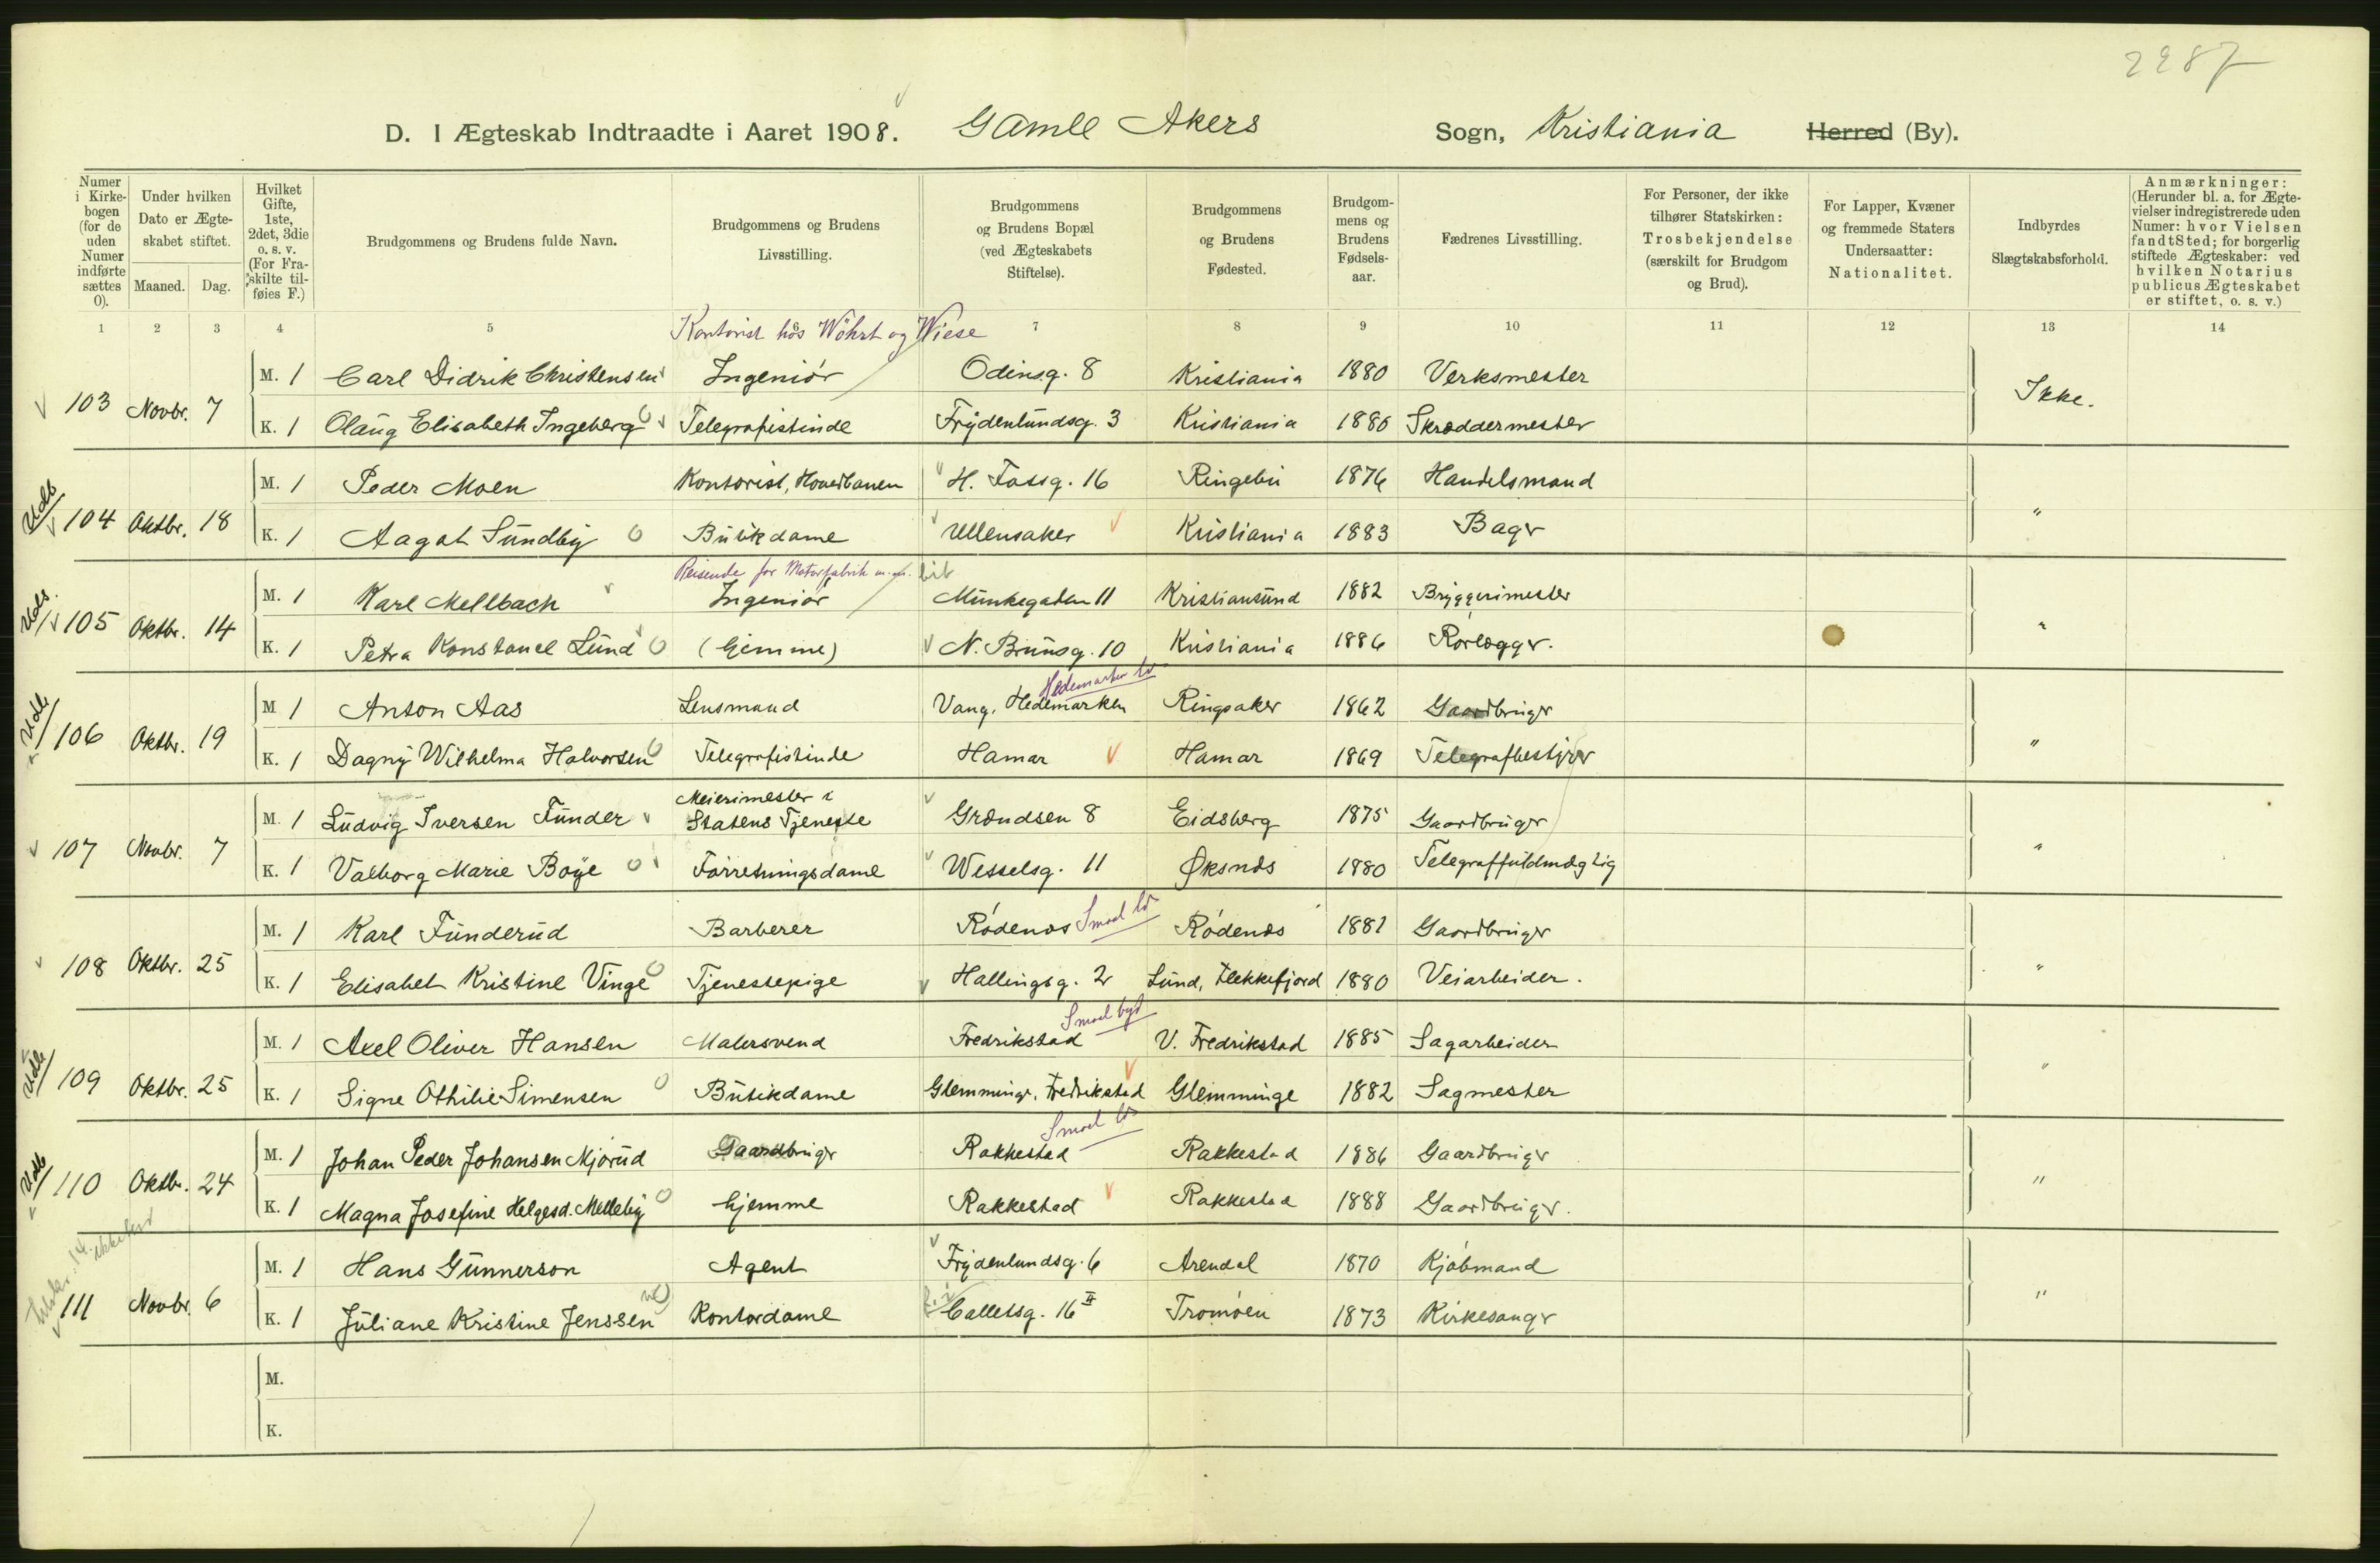 2287
D. I Ægteskab Indtraadte i Aaret 1908. Gamle Akers Sogn, Kristiania Herred (By).
Numer i Kirkebogen (for de uden Numer indførte sættes 0).
Under hvilken Dato er Ægteskabet stiftet.
Maaned. Dag.
Hvilket Gifte, 1ste, 2det, 3die o. s. v. (For Fraskilte tilføies F.)
Brudgommens og Brudens fulde Navn.
Brudgommens og Brudens Livsstilling.
Brudgommens og Brudens Bopæl (ved Ægteskabets Stiftelse).
Brudgommens og Brudens Fødested.
Brudgommens og Brudens Fødselsaar.
Fædrenes Livsstilling.
For Personer, der ikke tilhører Statskirken: Trosbekjendelse (særskilt for Brudgom og Brud).
For Lapper, Kvæner og fremmede Staters Undersaatter: Nationalitet.
Indbyrdes Slægtskabsforhold.
Anmærkninger: (Herunder bl. a. for Ægtevielser indregistrerede uden Numer: hvor Vielsen fandt Sted; for borgerlig stiftede Ægteskaber: ved hvilken Notarius publicus Ægteskabet er stiftet, o. s. v.)
1 2 3 4 5 6 7 8 9 10 11 12 13 14
Kontorist hos Wöhrt og Wiese
M. 1 Carl Didrik Christensen Ingeniör Odinsg. 8 Kristiania 1880 Verksmester
103 Novbr. 7 Ikke.
K. 1 Olaug Elisabeth Ingeberg Telegrafistinde Frydenlundsg. 3 Kristiania 1880 Skræddermester
M. 1 Peder Moen Kontorist, Hovedbanen H. Fossg. 16 Ringebu 1876 Handelsmand
Udb 104 Oktbr. 18 "
K. 1 Aagot Sundby Butikdame Ullensaker Kristiania 1883 Bager
Reisende for Motorfabrik
M. 1 Karl Mellbach Ingeniør Munkegaten 11 Kristiansund 1882 Bryggerimester
Udb. 105 Oktbr. 14 "
K. 1 Petra Konstance Lund (hjemme) N. Brunsg. 10 Kristiania 1886 Rørlægger.
Hedemarken ld
M 1 Anton Aas Lensmand Vang, Hedemarken Ringsaker 1862 Gaardbruger
Udb 106 Oktbr. 19 "
K. 1 Dagny Wilhelma Halvorsen Telegrafistinde Hamar Hamar 1869 Telegrafbestyrer
Meierimester i
M. 1 Ludvig Iversen Funder Statens Tjeneste Grøndsen 8 Eidsberg 1875 Gaardbruger
107 Novbr. 7 "
K. 1 Valborg Marie Boye Forretningsdame Wesselsg. 11 Øksnæs 1880 Telegraffuldmægtig
M. 1 Karl Funderud Barberer Rødenæs Smaal ld Rødenæs 1881 Gaardbruger
108 Oktbr. 25 "
K. 1 Elisabet Kristine Vinge Tjenestepige Hallingsg. 2 Lund, Flekkefjord 1880 Veiarbeider.
Smaal byd
M. 1 Axel Oliver Hansen Malersvend Fredrikstad V. Fredrikstad 1885 Sagarbeider
Udb 109 Oktbr. 25 "
K. 1 Signe Othilie Simensen Butikdame Glemminge, Fredrikstad Glemminge 1882 Sagmester
Smaal ld
M. 1 Johan Peder Johansen Mjørud Gaardbruger Rakkestad Rakkestad 1886 Gaardbruger
Udb 110 Oktbr. 24 "
K. 1 Magna Josefine Helgesd. Melleby hjemme Rakkestad Rakkestad 1888 Gaardbruger.
M. 1 Hans Gunnerson Agent Frydenlundsg. 6 Arendal 1870 Kjøbmand
111 Novbr. 6 "
K. 1 Juliane Kristine Jenssen Kontordame Calletsg. 16 II Tromøen 1873 Kirkesanger
M.
K.